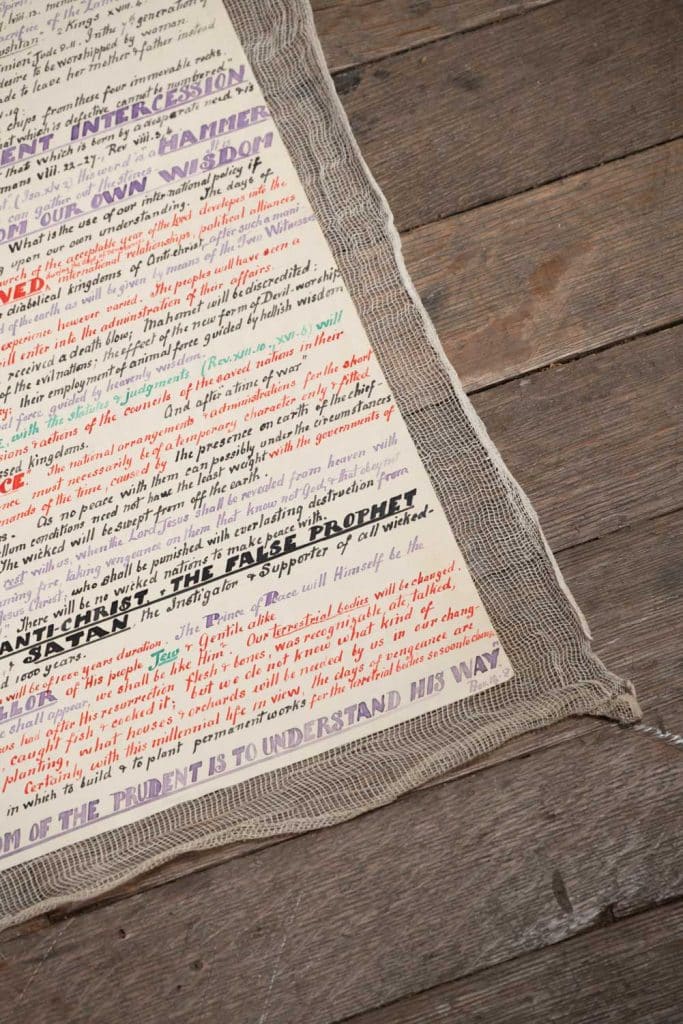 viii.13. mem
Sacrifice of the Lam
ushtan." 2 Kings XVIII. 4.
inion. Jude 8-11. In the 7th generation of
desire to be worshipped by woman.
ade to leave her mother & father instead
chips from these four immovable rocks.
at which is defective cannot be numbered"
ENT INTERCESSION
that which is born by a desperate need & is
mans VIII. 22-27., Rev VIII. 3, 4.
this word is a HAMMER
can gather out the stones
OM OUR OWN WISDOM
What is the use of our international policy if
g upon our own understanding. The days of
urch of the acceptable year of the Lord developes into the
VED, international relationships, political alliances
diabolical kingdoms of Anti-christ, after such a mani
d of the earth as will be given by means of the Two Witnesse
experience however varied. The peoples will have seen a
ill enter into the administration of their affairs.
received a death blow; Mahomet will be discredited;
of the evil nations; the effect of the new form of Devil-worship
y; their employment of animal force guided by hellish wisdom
al force guided by heavenly wisdom.
E, with the statutes & judgments (Rev. XIII-10., XVI-6) will
sions & actions of the councils of the saved nations in their
ssed kingdoms. And after "a time of war"
CE! The national arrangements & administrations for the short
ence must necessarily be of a temporary character only & fitted
mands of the time, caused by the presence on earth of the chief-
s. As no peace with them can possibly under the circumstances
llum conditions need not have the least weight with the governments of
The wicked will be swept from off the earth.
rest with us, when the Lord Jesus shall be revealed from heaven with
ming fire, taking vengeance on them that know not God, & that obey not
Jesus Christ; who shall be punished with everlasting destruction from
" There will be no wicked nations to make peace with.
ANTI-CHRIST, & THE FALSE PROPHET
& SATAN, the Instigator & Supporter of all wicked-
d 1000 years.
will be of 1000 years duration. The Prince of Peace will Himself be the
LLOR of His people Jew & Gentile alike
e shall appear, we shall be like Him". Our terrestrial bodies will be changed.
us had after His resurrection flesh & bones, was recognizable, ate, talked,
caught fish & cooked it; but we do not know what kind of
planting, what houses & orchards will be needed by us in our chang-
Certainly with this millennial life in view, the days of vengeance are
in which to build & to plant permanent works for the terrestrial bodies so soon to chang
OM OF THE PRUDENT IS TO UNDERSTAND HIS WAY"